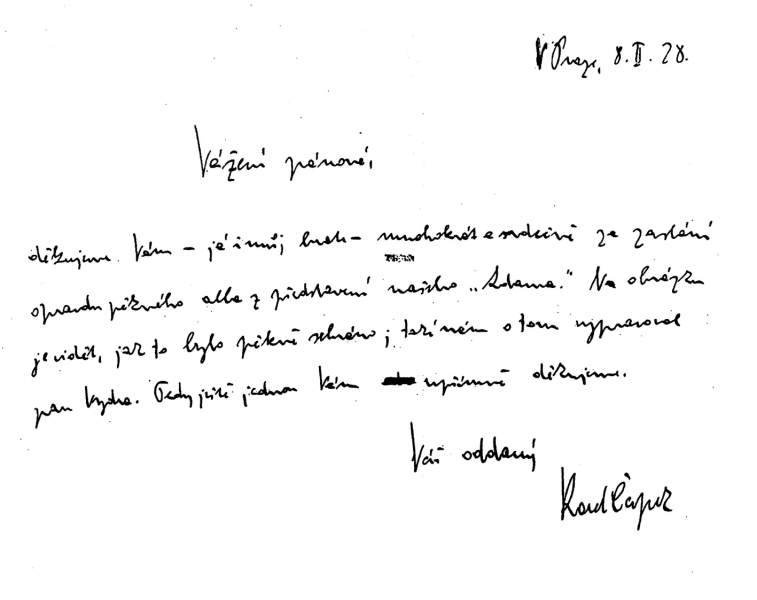 V Praze, 8. II. 28.
Vážení pánové,
děkujeme Vám – já i můj bratr – mnohokrát a srdečně za zaslání
opravdu pěkného alba z představení našeho „Adama.“ Na obrázku
je vidět, jak to bylo pěkně sehráno; také nám o tom vypravoval
pan Vydra. Tedy ještě jednou Vám upřímně děkujeme.
Váš oddaný
Karel Čapek